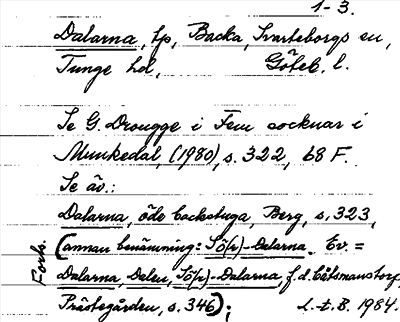 1-3.
Dalarna, tp, Backa, Svarteborgs sn,
Tunge hd, Göteb. l.
Se G. Drougge i Fem socknar i
Munkedal, (1980), s. 322, 68 F.
Se äv.:
Dalarna, öde backstuga, Berg, s. 323,
(annan benämning: Sö(r)-Dalarna. Ev. =
Dalarna, Dalen, Sö(r)-Dalarna, f.d. båtsmanstorp,
Prästegården, s. 346);
Forts. L.t.B. 1984.